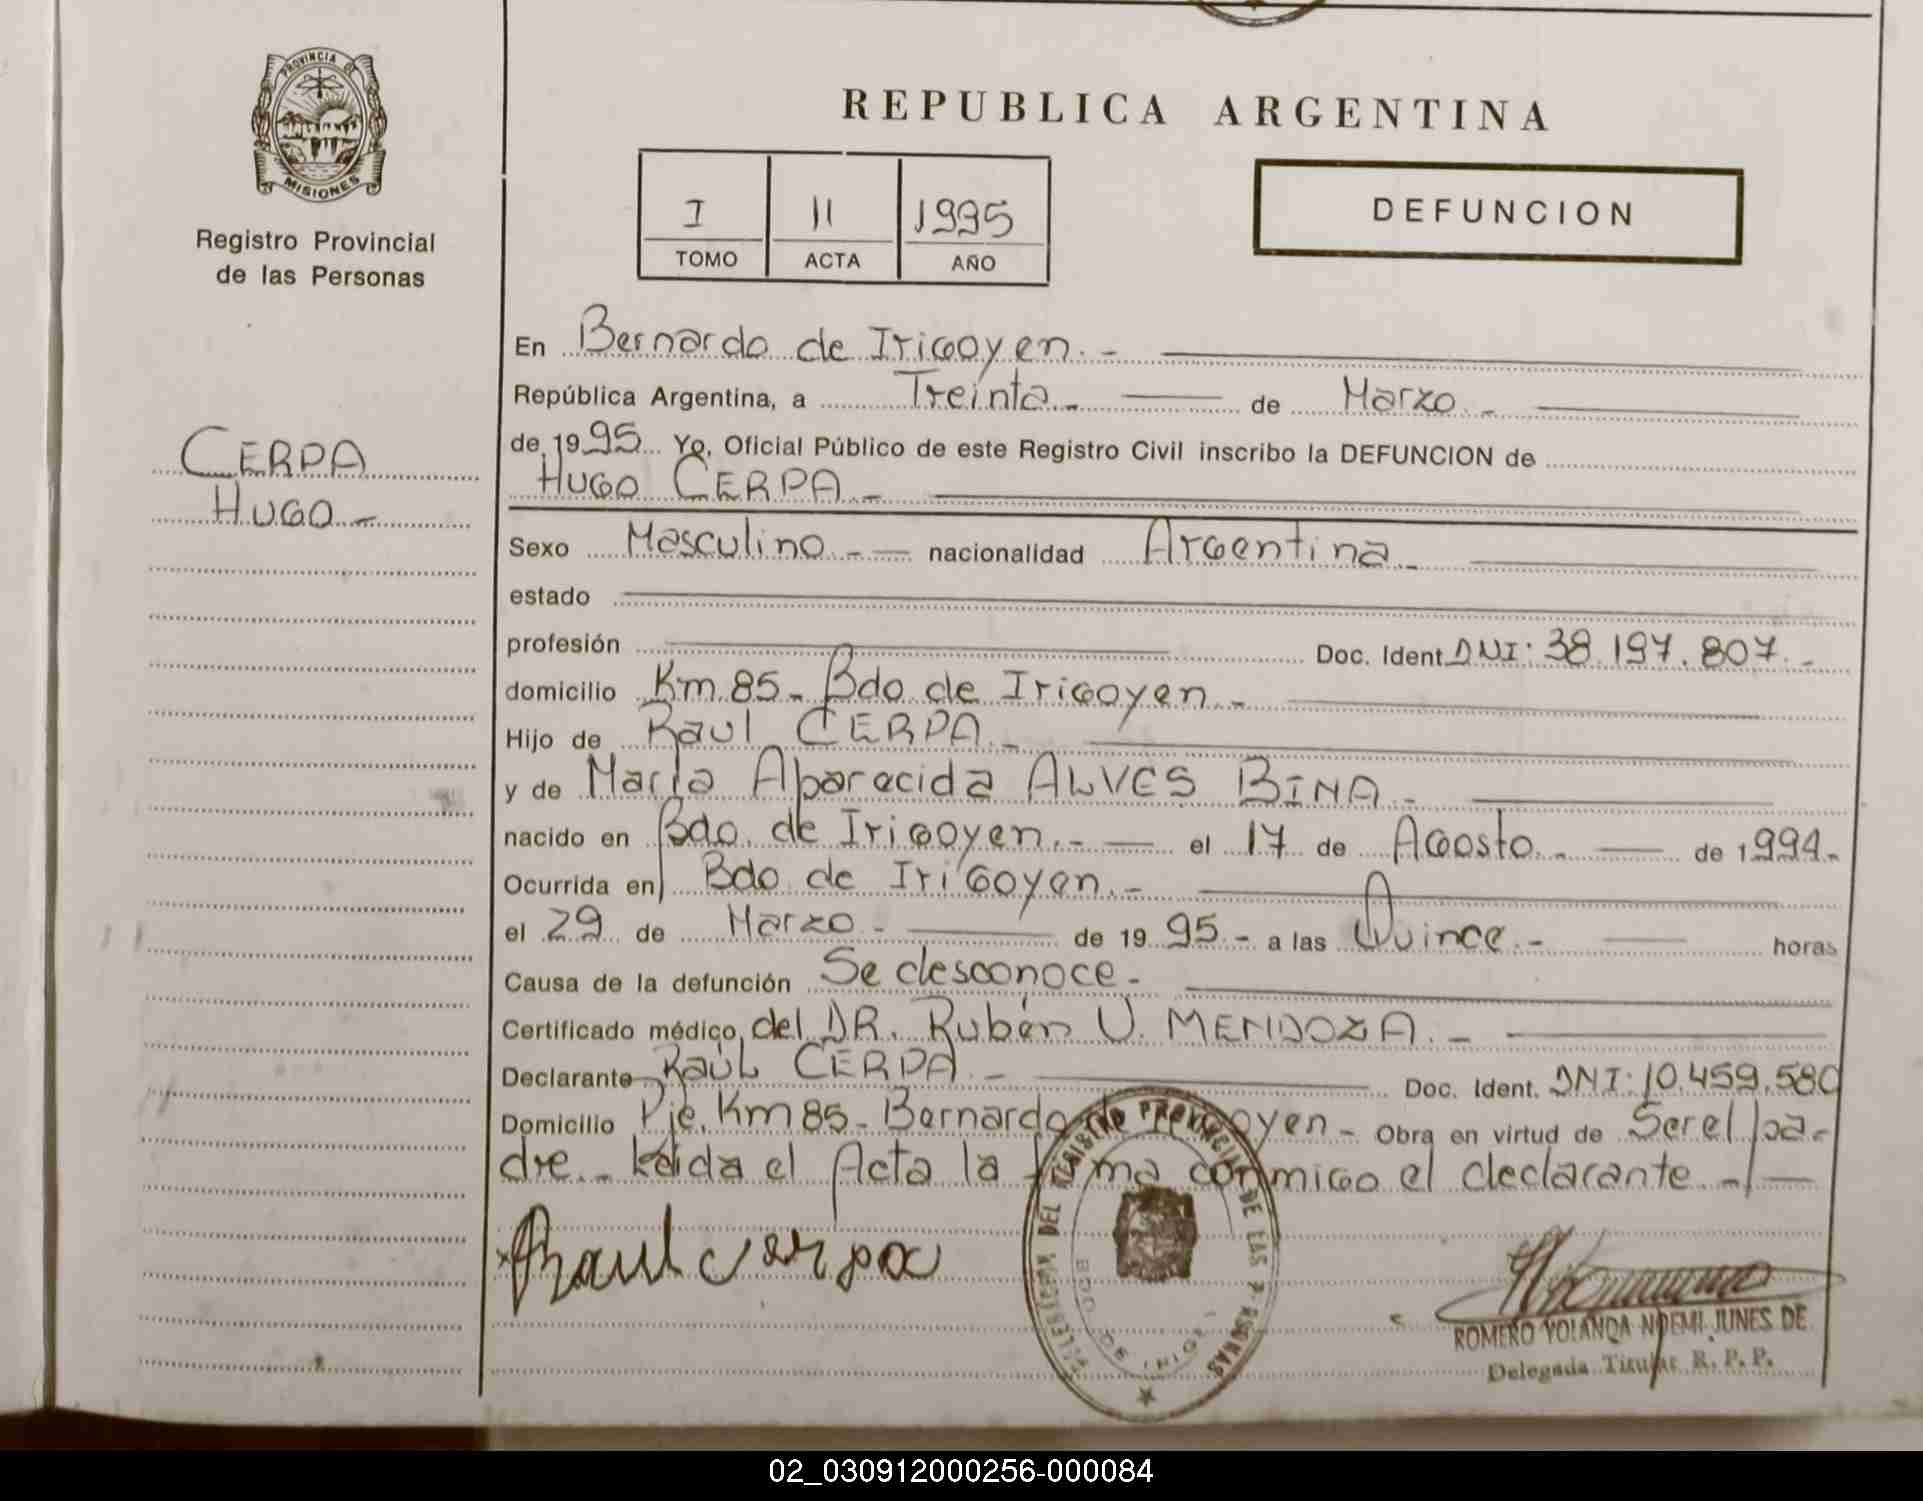 PROVINCIA DE
MISIONES
Registro Provincial
de las Personas
CERPA
HUGO -
REPUBLICA ARGENTINA
I 11 1995
TOMO ACTA AÑO
DEFUNCION
En Bernardo de Irigoyen. -
República Argentina, a Treinta - de Marzo. -
de 1995 Yo, Oficial Público de este Registro Civil inscribo la DEFUNCION de
HUGO CERPA. -
Sexo Masculino. - nacionalidad Argentina. -
estado
profesión Doc. Ident. DNI: 38.197.807. -
domicilio Km. 85 - Bdo de Irigoyen. -
Hijo de Raul CERPA. -
y de María Aparecida ALVES BINA. -
nacido en Bdo. de Irigoyen. - el 17 de Agosto. - de 1994. -
Ocurrida en Bdo. de Irigoyen. -
el 29 de Marzo - de 1995. - a las Quince. - horas
Causa de la defunción Se desconoce. -
Certificado médico del DR. Rubén U. MENDOZA. -
Declarante Raúl CERPA. - Doc. Ident. DNI: 10.459.580
Domicilio Pje. Km 85 - Bernardo de Irigoyen - Obra en virtud de Ser el pa-
dre. - Leída el Acta la firma conmigo el declarante. -
Raul cerpa
DEL REGISTRO PROVINCIAL DE LAS PERSONAS
BDO. DE IRIGOYEN
ROMERO YOLANDA NOEMI JUNES DE
Delegada Titular R. P. P.
02_030912000256-000084